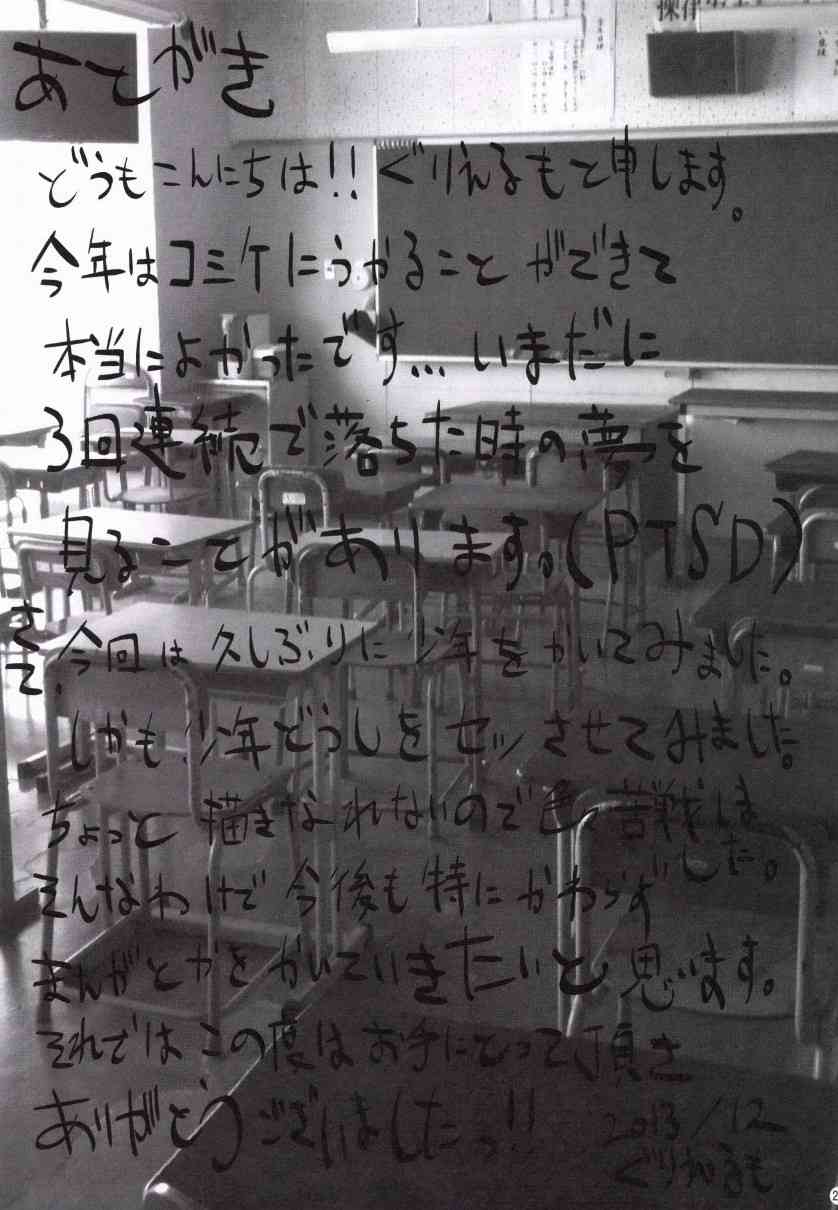 あとがき
どうもこんにちは!! ぐりえるもと申します。
今年はコミケにうかることができて
本当によかったです… いまだに
3回連続で落ちた時の夢を
見ることがあります。(PTSD)
さて、今回は久しぶりに少年をかいてみました。
しかも少年どうしをセッさせてみました。
ちょっと描きなれないので色々苦戦しました。
そんなわけで今後も特にかわらず
まんがとかをかいていきたいと思います。
それではこの度はお手にとって頂き
ありがとうございましたっ!!
2013/12
ぐりえるも